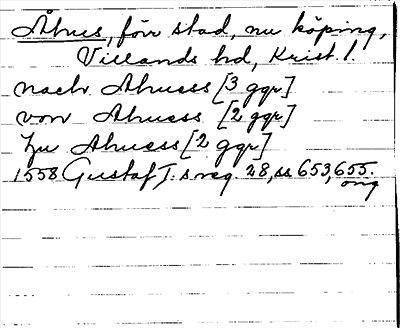 Åhus, förr stad, nu köping,
Villands hd, Krist. l.
nach Ahuess [3 ggr]
von Ahuess [2 ggr]
zu Ahuess [2 ggr]
1558 Gustaf I:s reg. 28, ss 653, 655.
orig